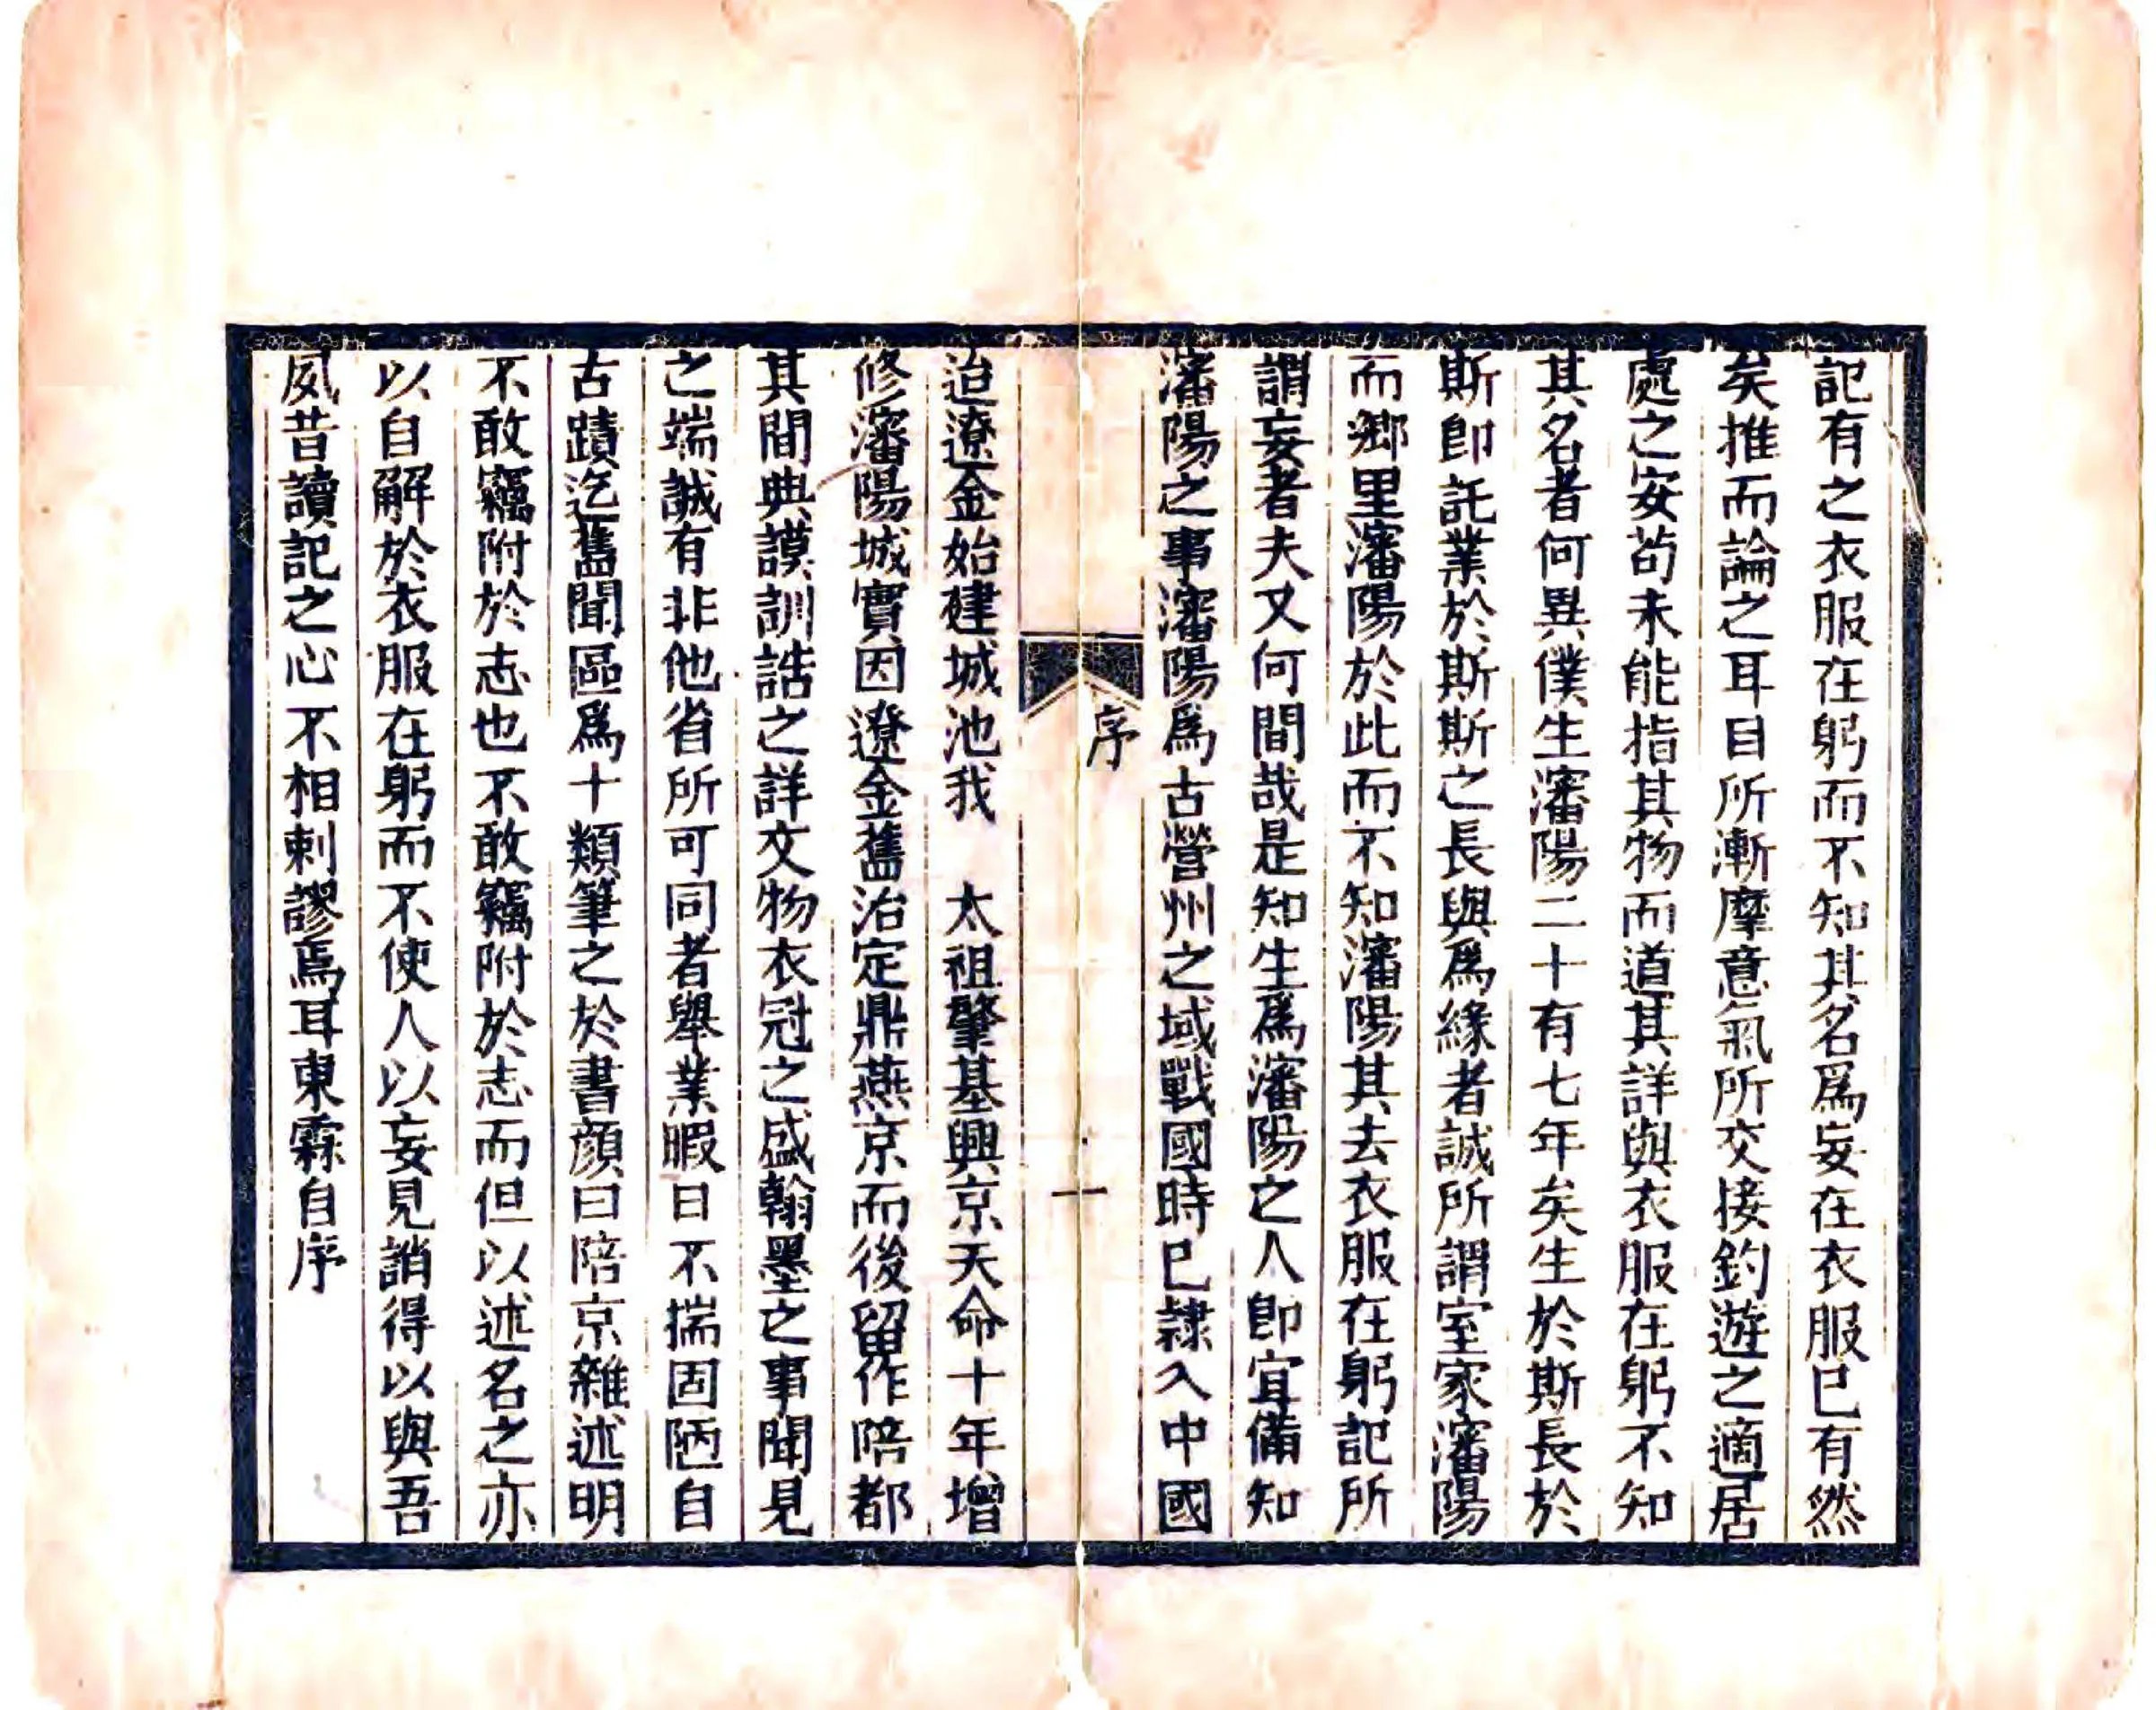 記有之衣服在躬而不知其名爲妄在衣服已有然
矣推而論之耳目所漸摩意氣所交接釣遊之適居
處之安苟未能指其物而道其詳與衣服在躬不知
其名者何異僕生瀋陽二十有七年矣生於斯長於
斯卽託業於斯斯之長與爲緣者誠所謂室家瀋陽
而鄉里瀋陽於此而不知瀋陽其去衣服在躬記所
謂妄者夫又何間哉是知生爲瀋陽之人卽宜備知
瀋陽之事瀋陽爲古營州之域戰國時已隷入中國
序
一
迨遼金始建城池我　太祖肇基興京天命十年增
修瀋陽城實因遼金舊治定鼎燕京而後留作陪都
其間典謨訓誥之詳文物衣冠之盛翰墨之事聞見
之端誠有非他省所可同者舉業暇日不揣固陋自
古蹟迄舊聞區爲十類筆之於書顏曰陪京雜述明
不敢竊附於志也不敢竊附於志而但以述名之亦
以自解於衣服在躬而不使人以妄見誚得以與吾
夙昔讀記之心不相剌謬焉耳東霖自序